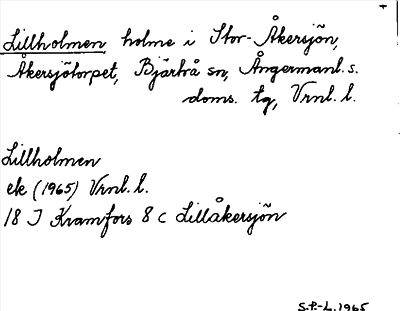 Lillholmen holme i Stor-Åkersjön,
Åkersjötorpet, Bjärtrå sn, Ångermanl. s.
doms. tg, Vrnl. l.
Lillholmen
ek (1965) Vrnl. l.
18 J Kramfors 8 c Lillåkersjön
S.P.-L. 1965